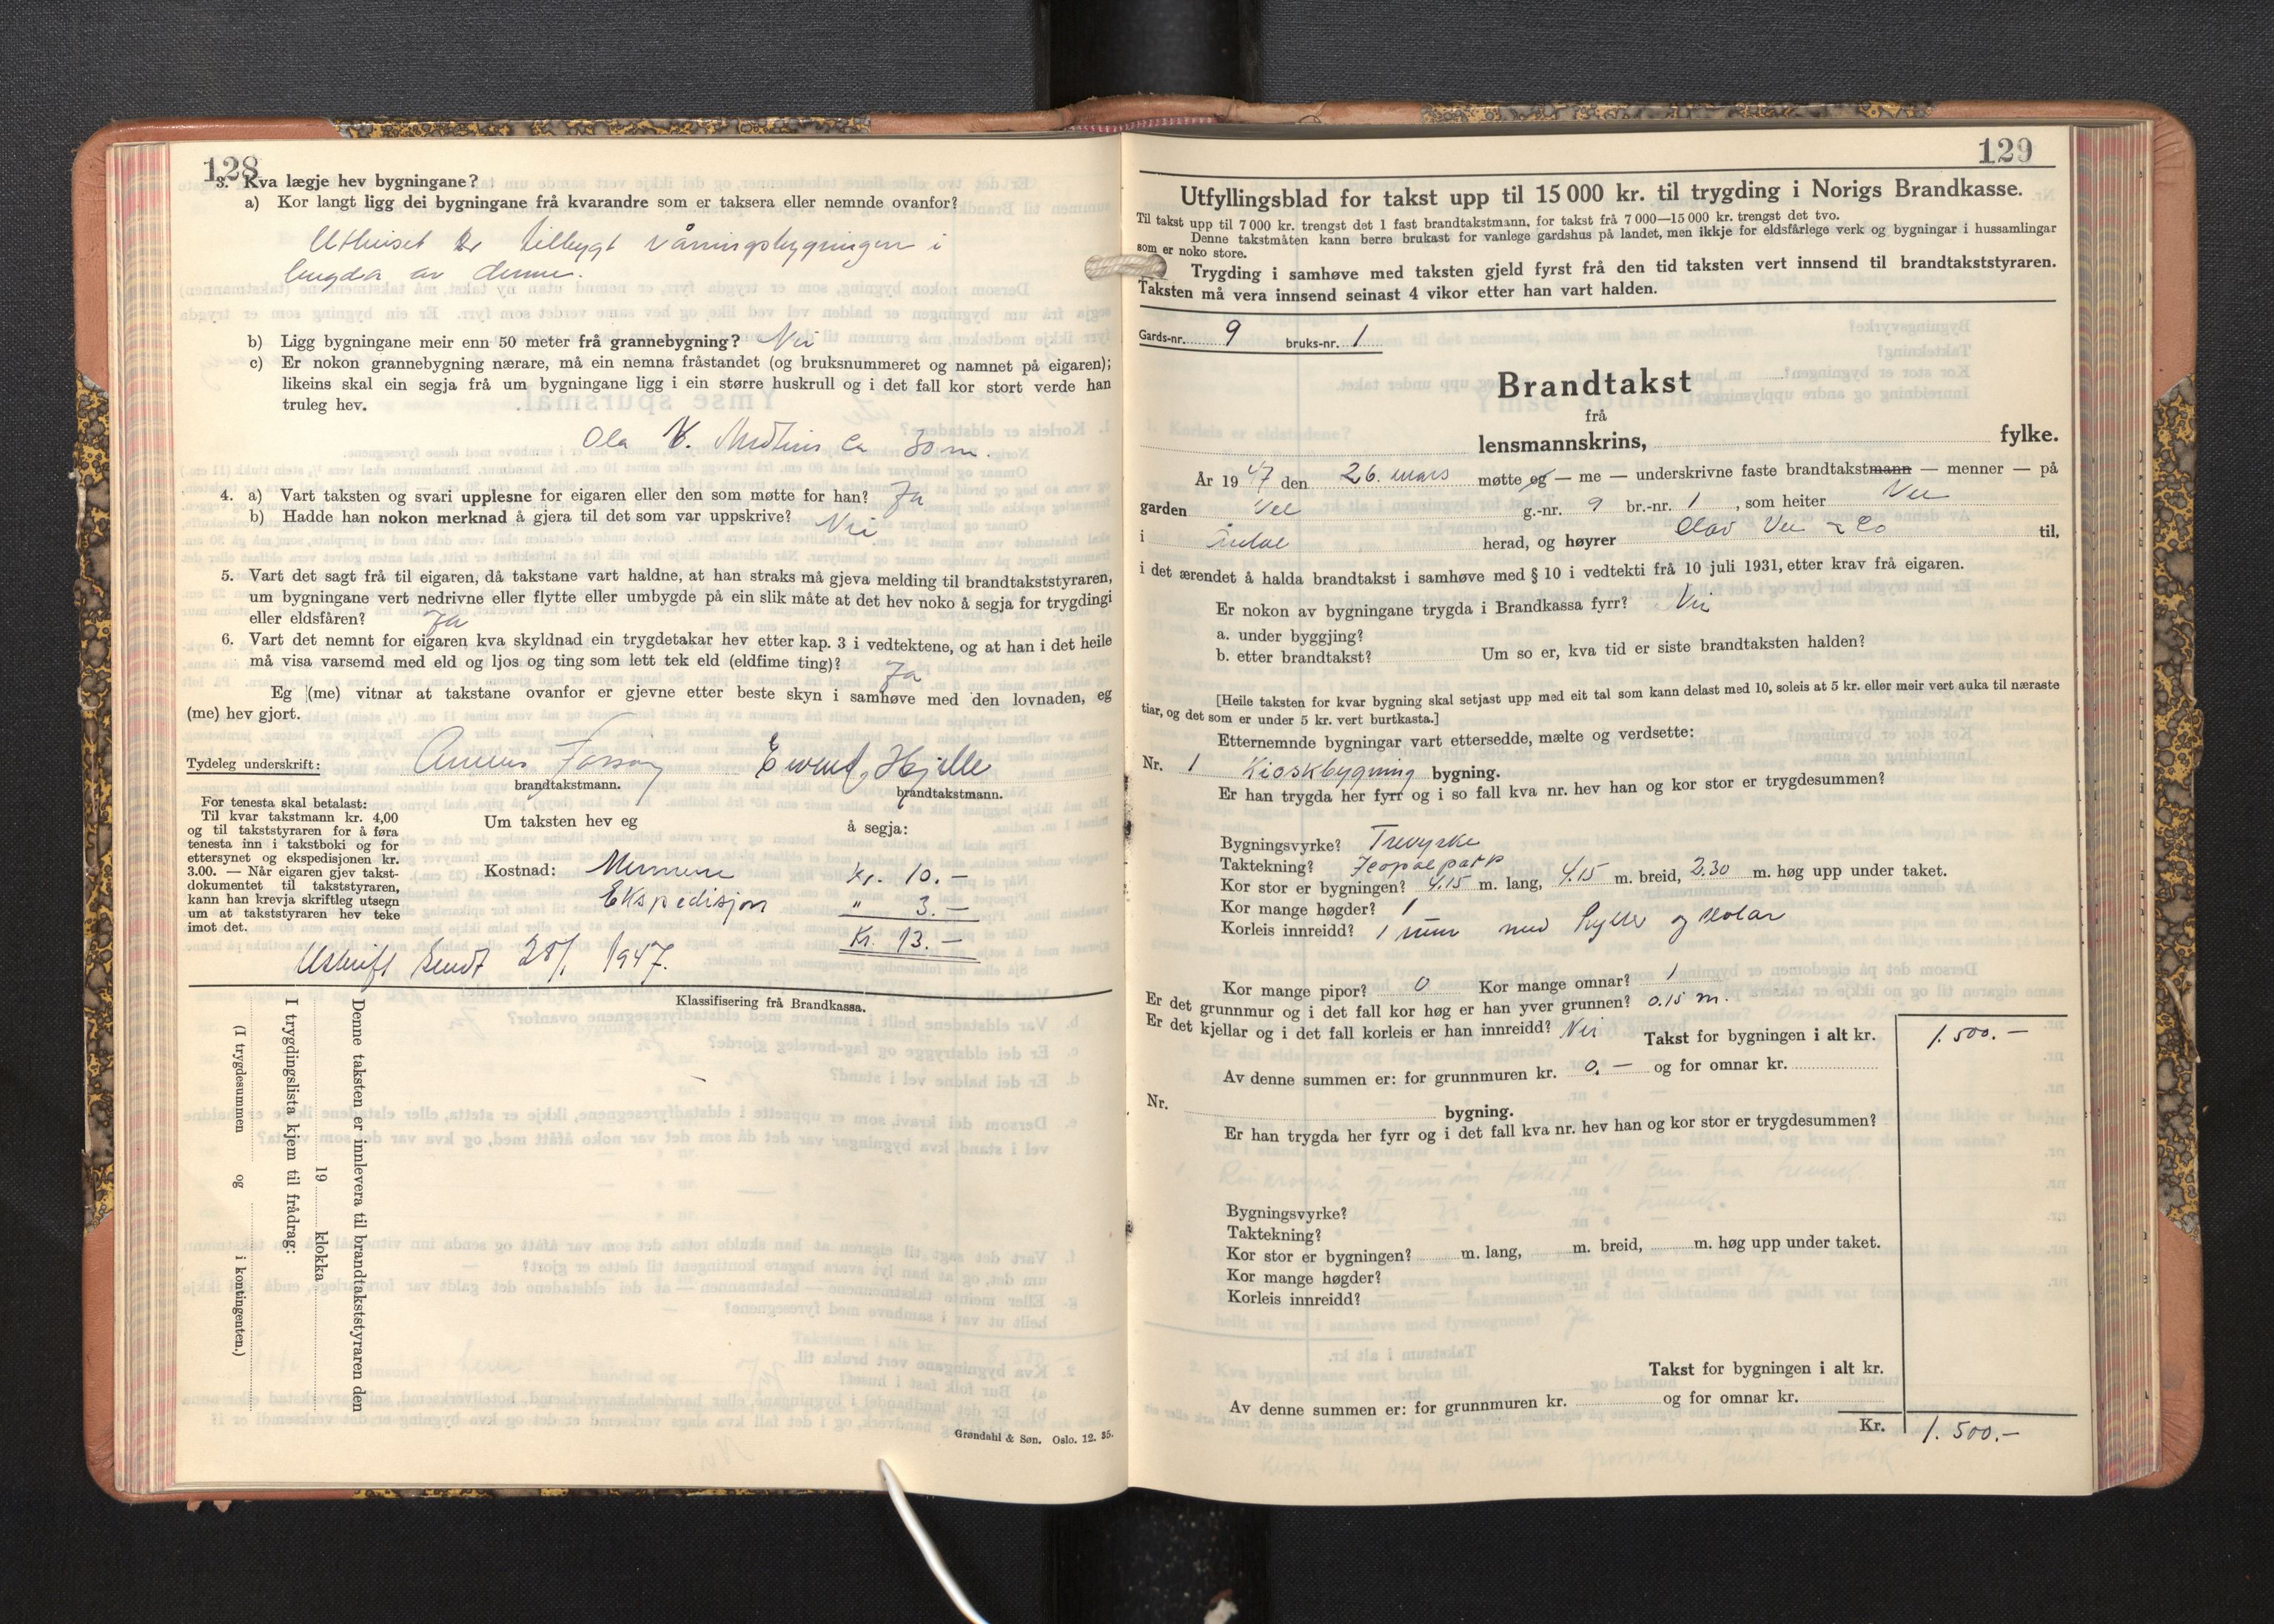 128
3. Kva lægje hev bygningane?
a) Kor langt ligg dei bygningane frå kvarandre som er taksera eller nemnde ovanfor?
Uthuset er tilbygt våningsbygningen i
lengda av denne.
b) Ligg bygningane meir enn 50 meter frå grannebygning? Nei
c) Er nokon grannebygning nærare, må ein nemna fråstandet (og bruksnummeret og namnet på eigaren);
likeins skal ein segja frå um bygningane ligg i ein større huskrull og i det fall kor stort verde han
truleg hev.
Ola
4. a) Vart taksten og svari upplesne for eigaren eller den som møtte for han? Ja
b) Hadde han nokon merknad å gjera til det som var uppskrive? Nei
5. Vart det sagt frå til eigaren, då takstane vart haldne, at han straks må gjeva melding til brandtakststyraren,
um bygningane vert nedrivne eller flytte eller umbygde på ein slik måte at det hev noko å segja for trygdingi
eller eldsfåren? Ja
6. Vart det nemnt for eigaren kva skyldnad ein trygdetakar hev etter kap. 3 i vedtektene, og at han i det heile
må visa varsemd med eld og ljos og ting som lett tek eld (eldfime ting)? Ja
Eg (me) vitnar at takstane ovanfor er gjevne etter beste skyn i samhøve med den lovnaden, eg
(me) hev gjort.
Tydeleg underskrift: Hjelle
brandtakstmann. brandtakstmann.
For tenesta skal betalast:
Til kvar takstmann kr. 4,00
og til takststyraren for å føra
tenesta inn i takstboki og for
ettersynet og ekspedisjonen kr.
3.00. — Når eigaren gjev takst-
dokumentet til takststyraren,
kann han krevja skriftleg utsegn
um at takststyraren hev teke
imot det.
Um taksten hev eg å segja:
Kostnad: Mennene kr. 10.—
Ekspedisjon " 3.—
Kr. 13.—
Utskrift sendt 28/ 1947.
Klassifisering frå Brandkassa.
Denne taksten er innlevera til brandtakststyraren den
19 klokka
I trygdingslista kjem til frådrag:
(I trygdesummen og i kontingenten.)
Grøndahl & Søn. Oslo. 12. 35.
129
Utfyllingsblad for takst upp til 15 000 kr. til trygding i Norigs Brandkasse.
Til takst upp til 7 000 kr. trengst det 1 fast brandtakstmann, for takst frå 7 000—15 000 kr. trengst det tvo.
Denne takstmåten kann berre brukast for vanlege gardshus på landet, men ikkje for eldsfårlege verk og bygningar i hussamlingar
som er noko store.
Trygding i samhøve med taksten gjeld fyrst frå den tid taksten vert innsend til brandtakststyraren.
Taksten må vera innsend seinast 4 vikor etter han vart halden.
Gards-nr. 9 bruks-nr. 1
Brandtakst
frå
lensmannskrins, fylke.
År 1947 den 26. mars møtte eg — me — underskrivne faste brandtakstmann — menner — på
garden Vee g.-nr. 9 br.-nr. 1, som heiter Vee
i herad, og høyrer Olav Vee & Co til,
i det ærendet å halda brandtakst i samhøve med § 10 i vedtekti frå 10 juli 1931, etter krav frå eigaren.
Er nokon av bygningane trygda i Brandkassa fyrr? Nei
a. under byggjing?
b. etter brandtakst? Um so er, kva tid er siste brandtaksten halden?
[Heile taksten for kvar bygning skal setjast upp med eit tal som kann delast med 10, soleis at 5 kr. eller meir vert auka til næraste
tiar, og det som er under 5 kr. vert burtkasta.]
Etternemnde bygningar vart ettersedde, mælte og verdsette:
Nr. 1 Kioskbygning bygning.
Er han trygda her fyrr og i so fall kva nr. hev han og kor stor er trygdesummen?
Bygningsvyrke? Trevyrke
Taktekning?
Kor stor er bygningen? 4.15 m. lang, 4.15 m. breid, 2.30 m. høg upp under taket.
Kor mange høgder? 1
Korleis innreidd? 1 rum med hyller og
Kor mange pipor? 0 Kor mange omnar? 1
Er det grunnmur og i det fall kor høg er han yver grunnen? 0.15 m.
Er det kjellar og i det fall korleis er han innreidd? Nei Takst for bygningen i alt kr. 1.500.—
Av denne summen er: for grunnmuren kr. 0.— og for omnar kr.
Nr. bygning.
Er han trygda her fyrr og i det fall kva nr. hev han og kor stor er trygdesummen?
Bygningsvyrke?
Taktekning?
Kor stor er bygningen? m. lang, m. breid, m. høg upp under taket.
Kor mange høgder?
Korleis innreidd?
Takst for bygningen i alt kr.
Av denne summen er: for grunnmuren kr. og for omnar kr.
Kr. 1.500.—